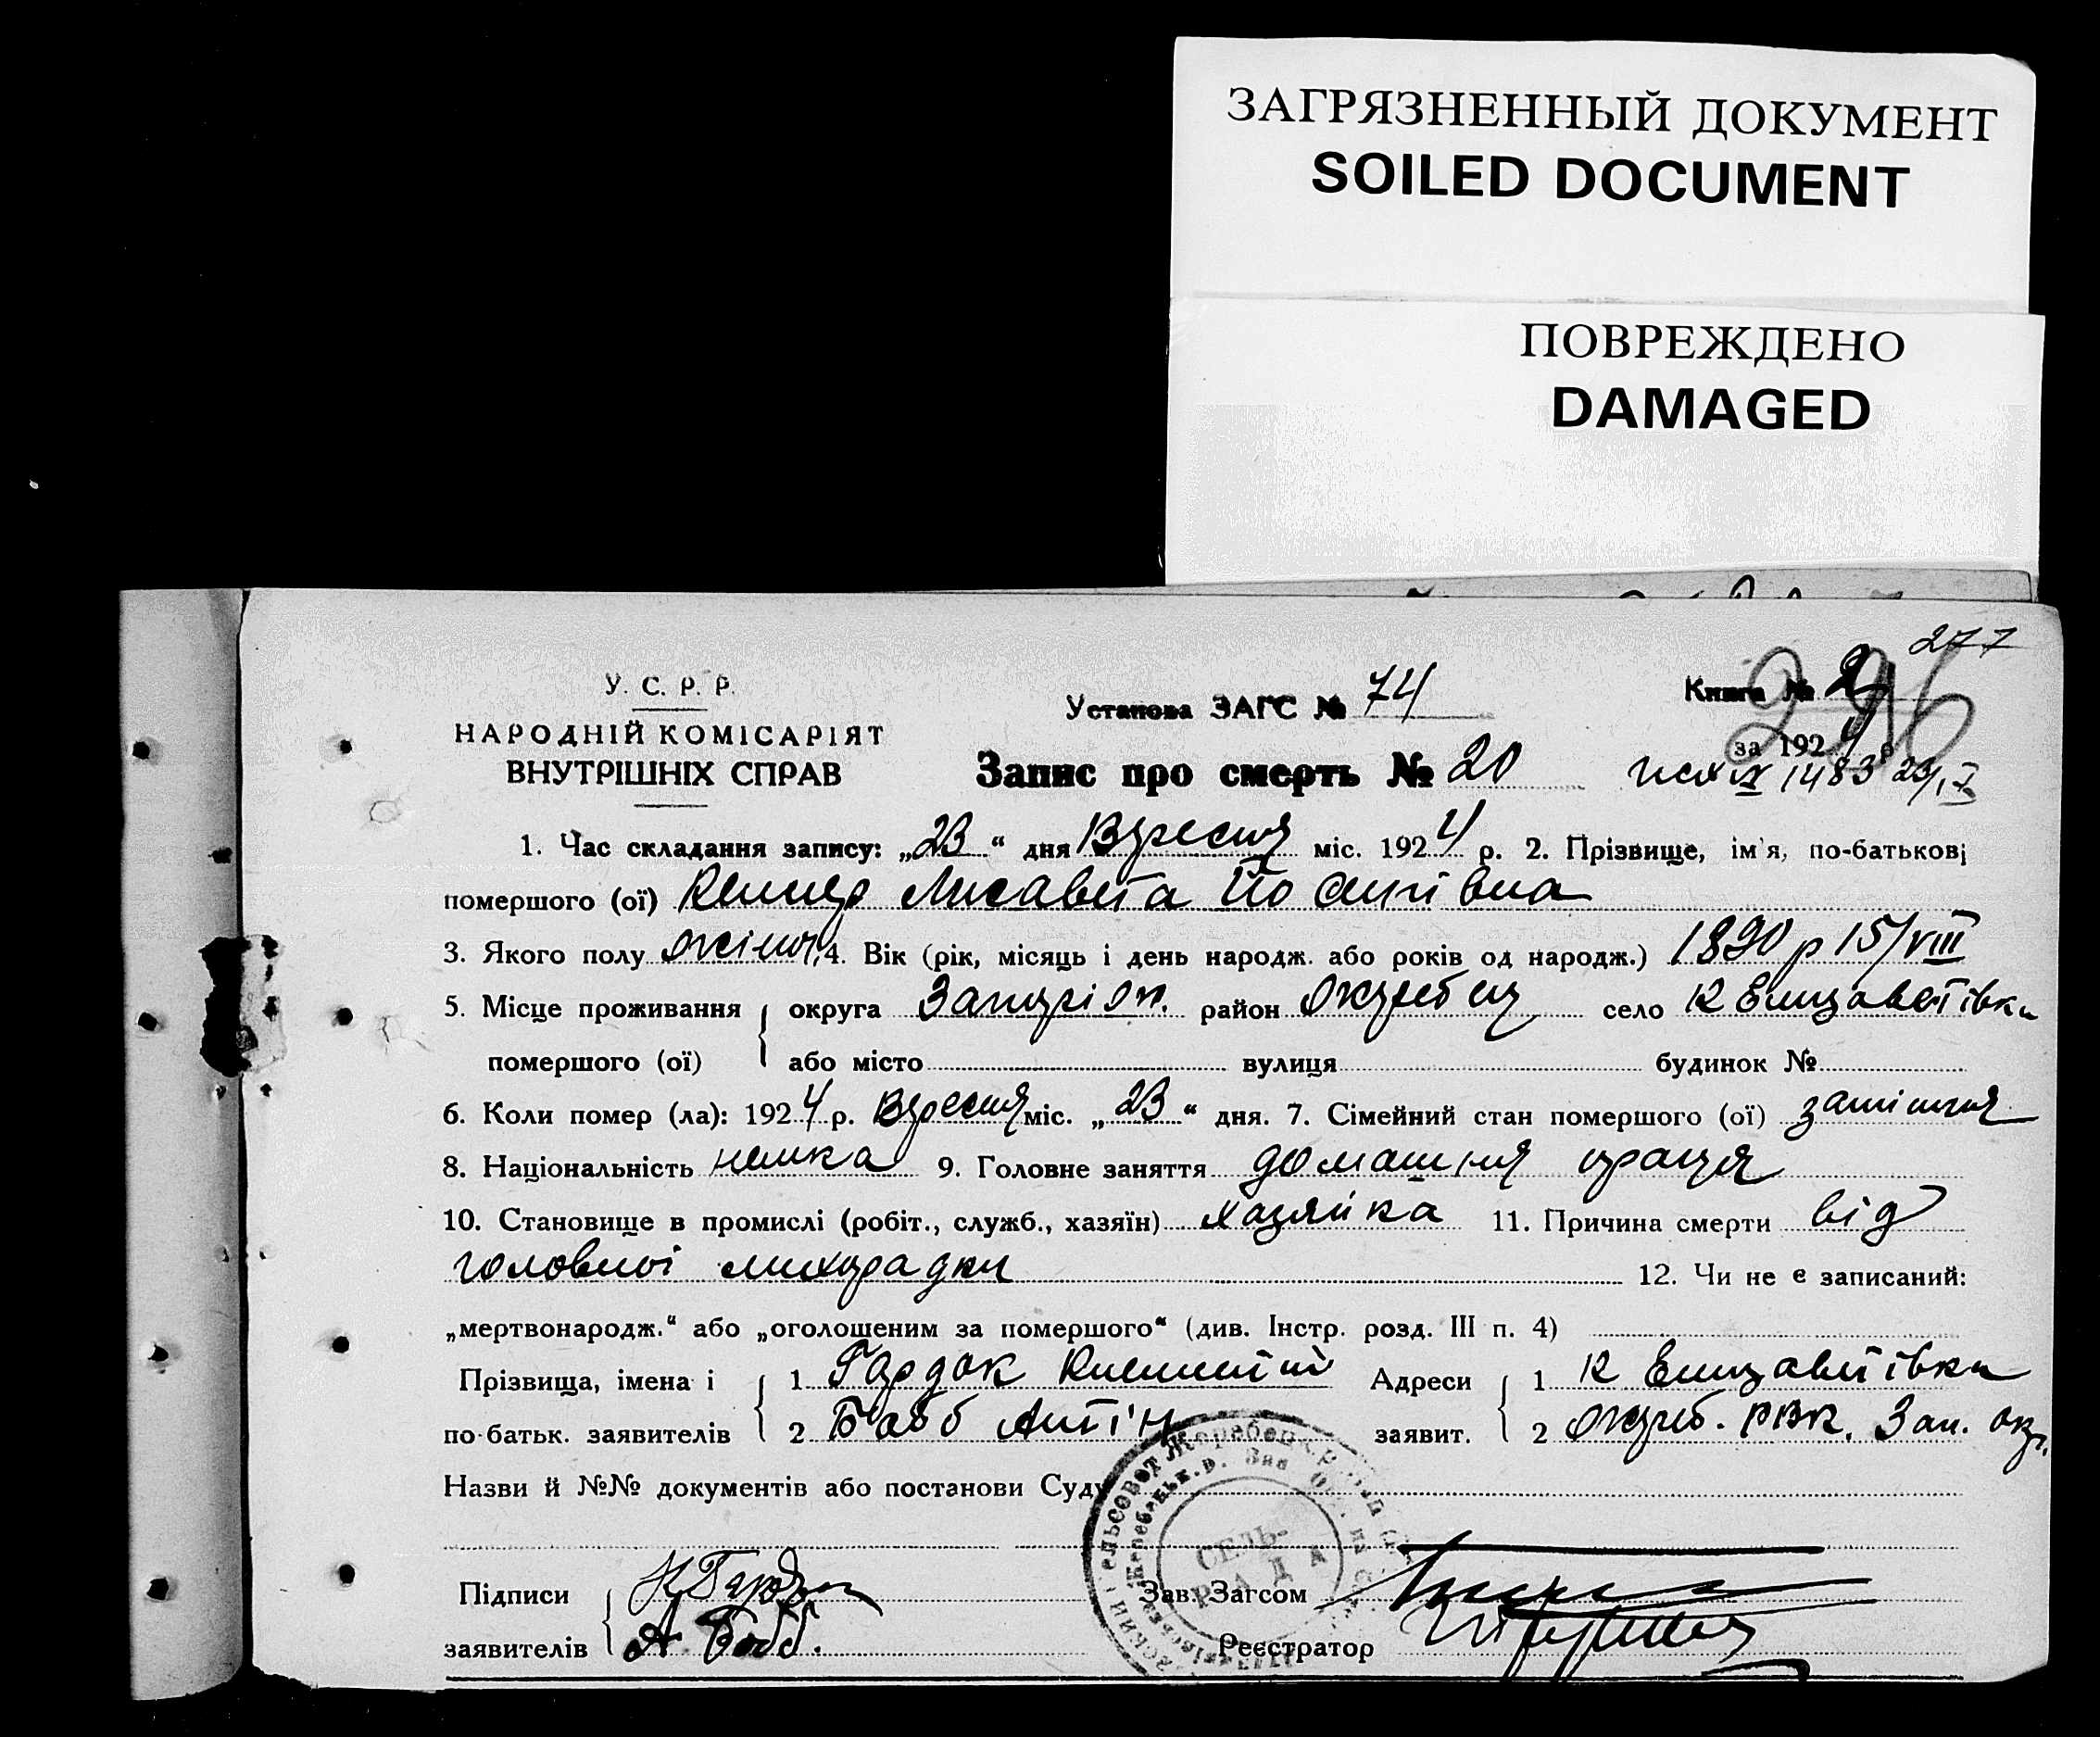 ЗАГРЯЗНЕННЫЙ ДОКУМЕНТ
SOILED DOCUMENT
ПОВРЕЖДЕНО
DAMAGED
277
296
У. С. Р. Р.
НАРОДНІЙ КОМІСАРІЯТ
ВНУТРІШНІХ СПРАВ
Установа ЗАГС № 74
Книга № 2
за 1924 р
Запис про смерть № 20
исх 1483
1. Час складання запису: „23“ дня Вересня міс. 1924 р. 2. Прізвище, ім'я, по-батькові
помершого (ої) Келлер Лисавета Йосипівна
3. Якого полу жіноч. 4. Вік (рік, місяць і день народж. або років од народж.) 1890 р 15/VIII
5. Місце проживання округа Запоріж. район Жеребец село К Елизаветівка
помершого (ої) або місто вулиця будинок №
6. Коли помер (ла): 1924 р. Вересня міс. „23“ дня. 7. Сімейний стан помершого (ої) заміжня
8. Національність немка 9. Головне заняття домашня праця
10. Становище в промислі (робіт., служб., хазяїн) хазяйка 11. Причина смерти від
головної лихорадки 12. Чи не є записаний:
„мертвонародж.“ або „оголошеним за помершого“ (див. Інстр. розд. III п. 4)
Прізвища, імена і 1 Гардок Климентій Адреси 1 К Елизаветівка
по-батьк. заявителів 2 Бабб Антін заявит. 2 Жереб. РВК. Зап. окр.
Назви й №№ документів або постанови Суду
СЕЛЬ-
РАДА
Підписи К Гардок Зав. Загсом
заявителів А. Бабб. Реєстратор